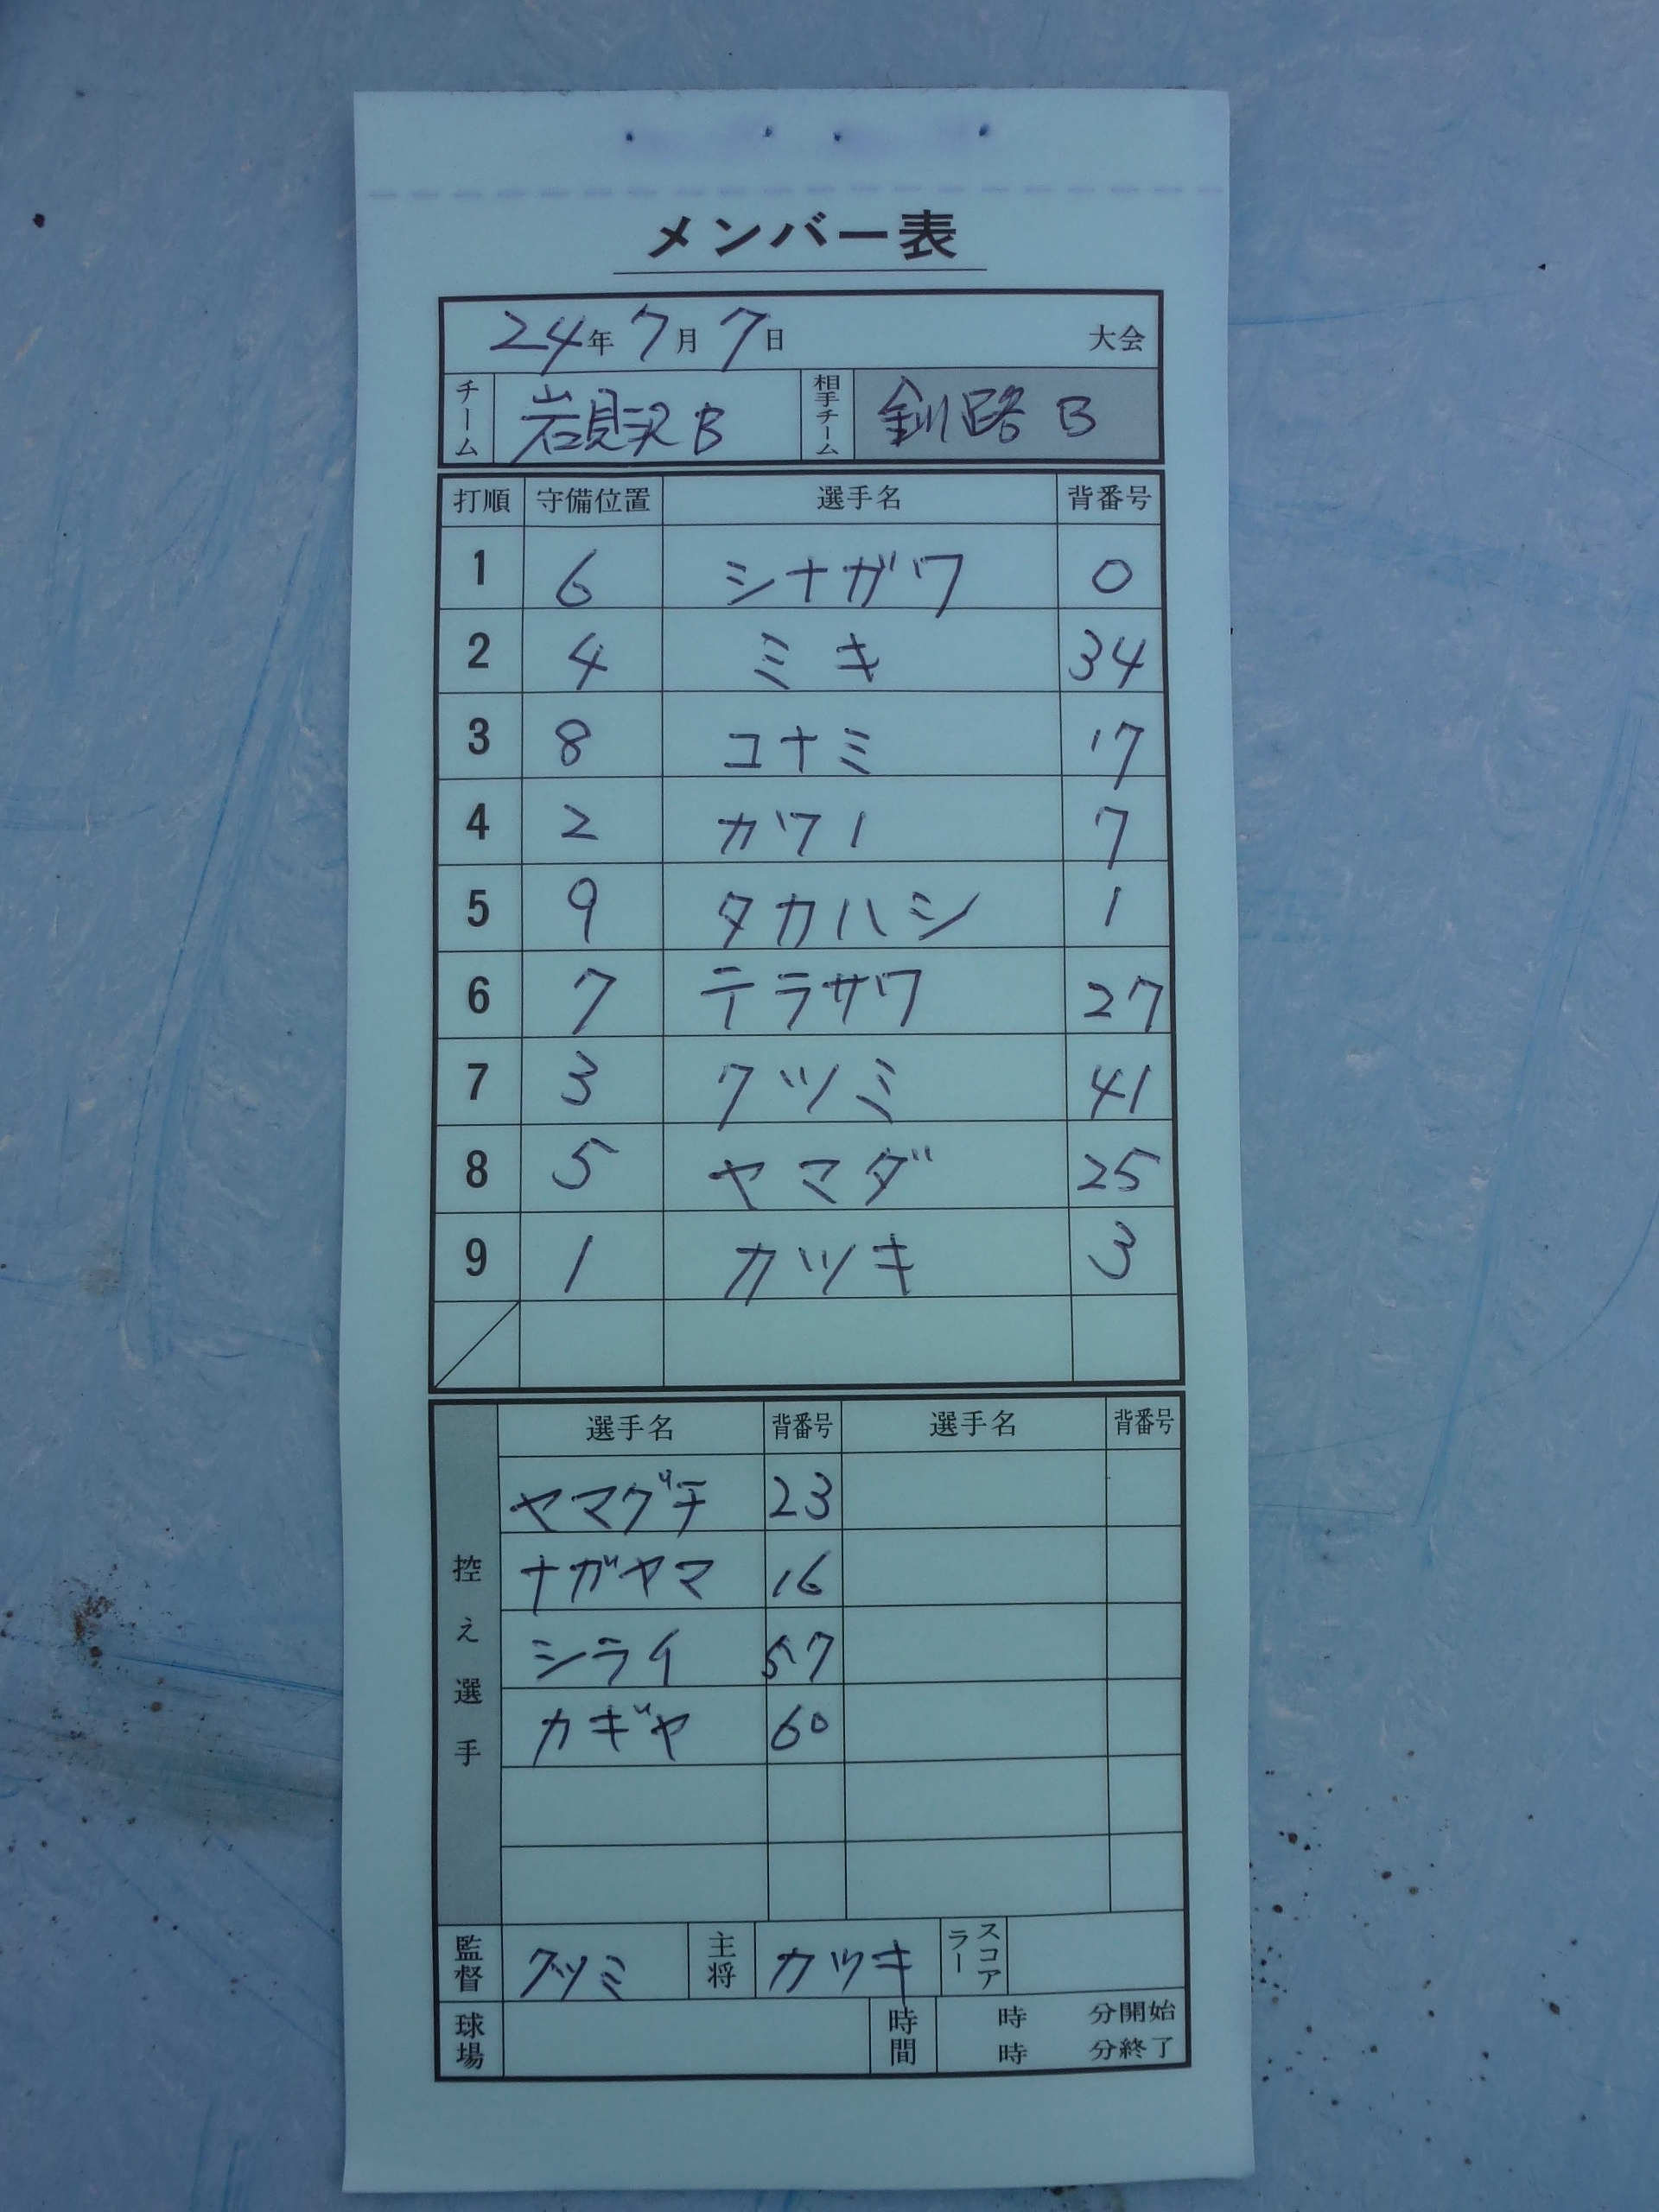 メンバー表
24年 7月 7日 大会
チーム 岩見沢B 相手チーム 釧路B
打順 守備位置 選手名 背番号
1 6 シナガワ 0
2 4 ミキ 34
3 8 コナミ 17
4 2 カワノ 7
5 9 タカハシ 1
6 7 テラサワ 27
7 3 クツミ 41
8 5 ヤマダ 25
9 1 カツキ 3
控え選手 選手名 背番号 選手名 背番号
ヤマグチ 23
ナガヤマ 16
シライ 57
カギヤ 60
監督 クツミ 主将 カツキ スコアラー
球場 時間 時 分開始
時 分終了